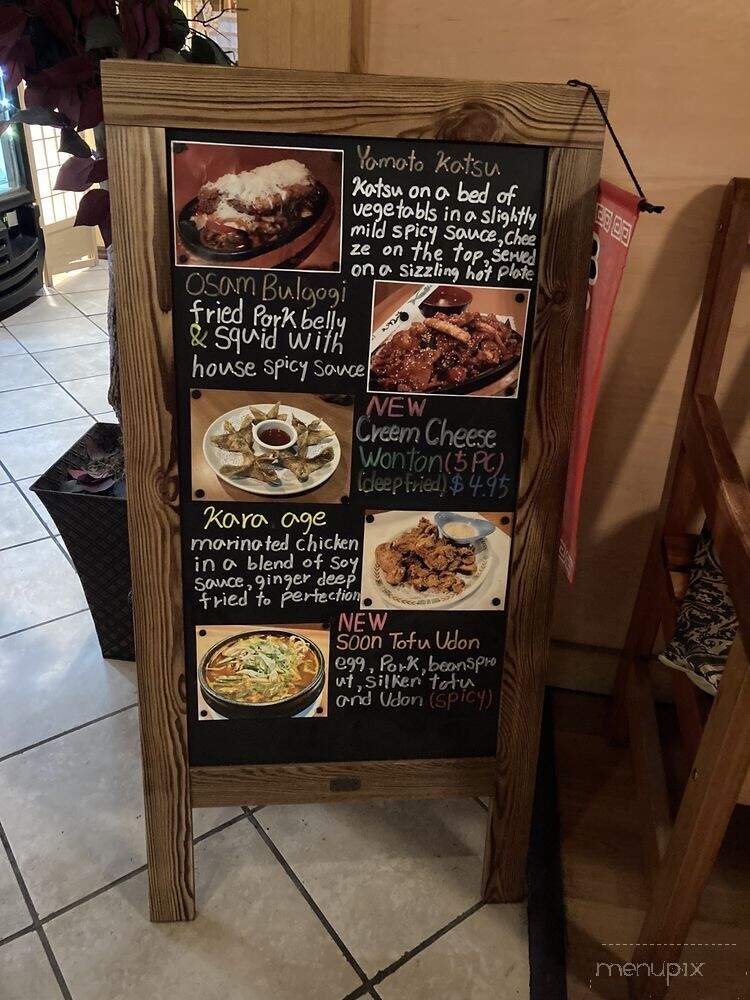 Yamato Katsu
Katsu on a bed of
vegetabls in a slightly
mild spicy sauce, chee
ze on the top, served
on a sizzling hot plate
Osam Bulgogi
fried Pork belly
& squid with
house spicy sauce
NEW
Creem Cheese
Wonton (5 PC)
(deep fried) $4.95
Kara age
marinated chicken
in a blend of soy
sauce, ginger deep
fried to pertection
NEW
Soon Tofu Udon
egg, Pork, beanspro
ut, silken tofu
and Udon (spicy)
menupix